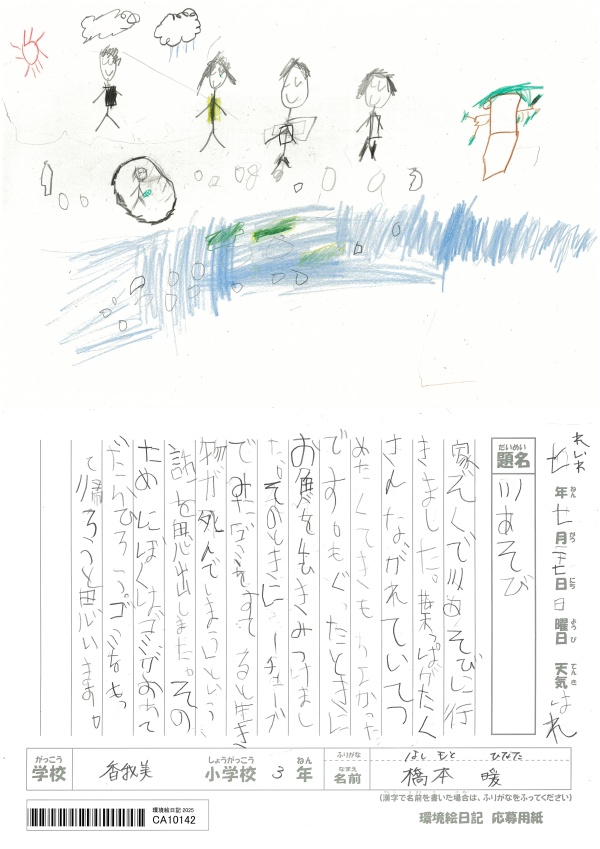 れいわ
七年七月二七日日曜日 天気はれ
ねん がつ にち ようび てんき
だいめい
題名 川あそび
家ぞくで川あそびに行
きました。葉っぱがたく
さんながれていてつ
めたくてきもちよかった
です。もぐったときに
お魚を生きみつけまし
た。そのときにユーチューブ
でみたゴミをすてると生き
物が死んでしまうという
話を思出しました。その
ためにぼくはゴミがおちて
いたらひろう。ゴミをもっ
て帰ろうと思います。
がっこう しょうがっこう ねん
学校 香我美 小学校 3年
ふりがな はしもと ひなた
なまえ
名前 橋本 暖
(漢字で名前を書いた場合は、ふりがなをふってください)
環境絵日記 応募用紙
環境絵日記 2025
CA10142